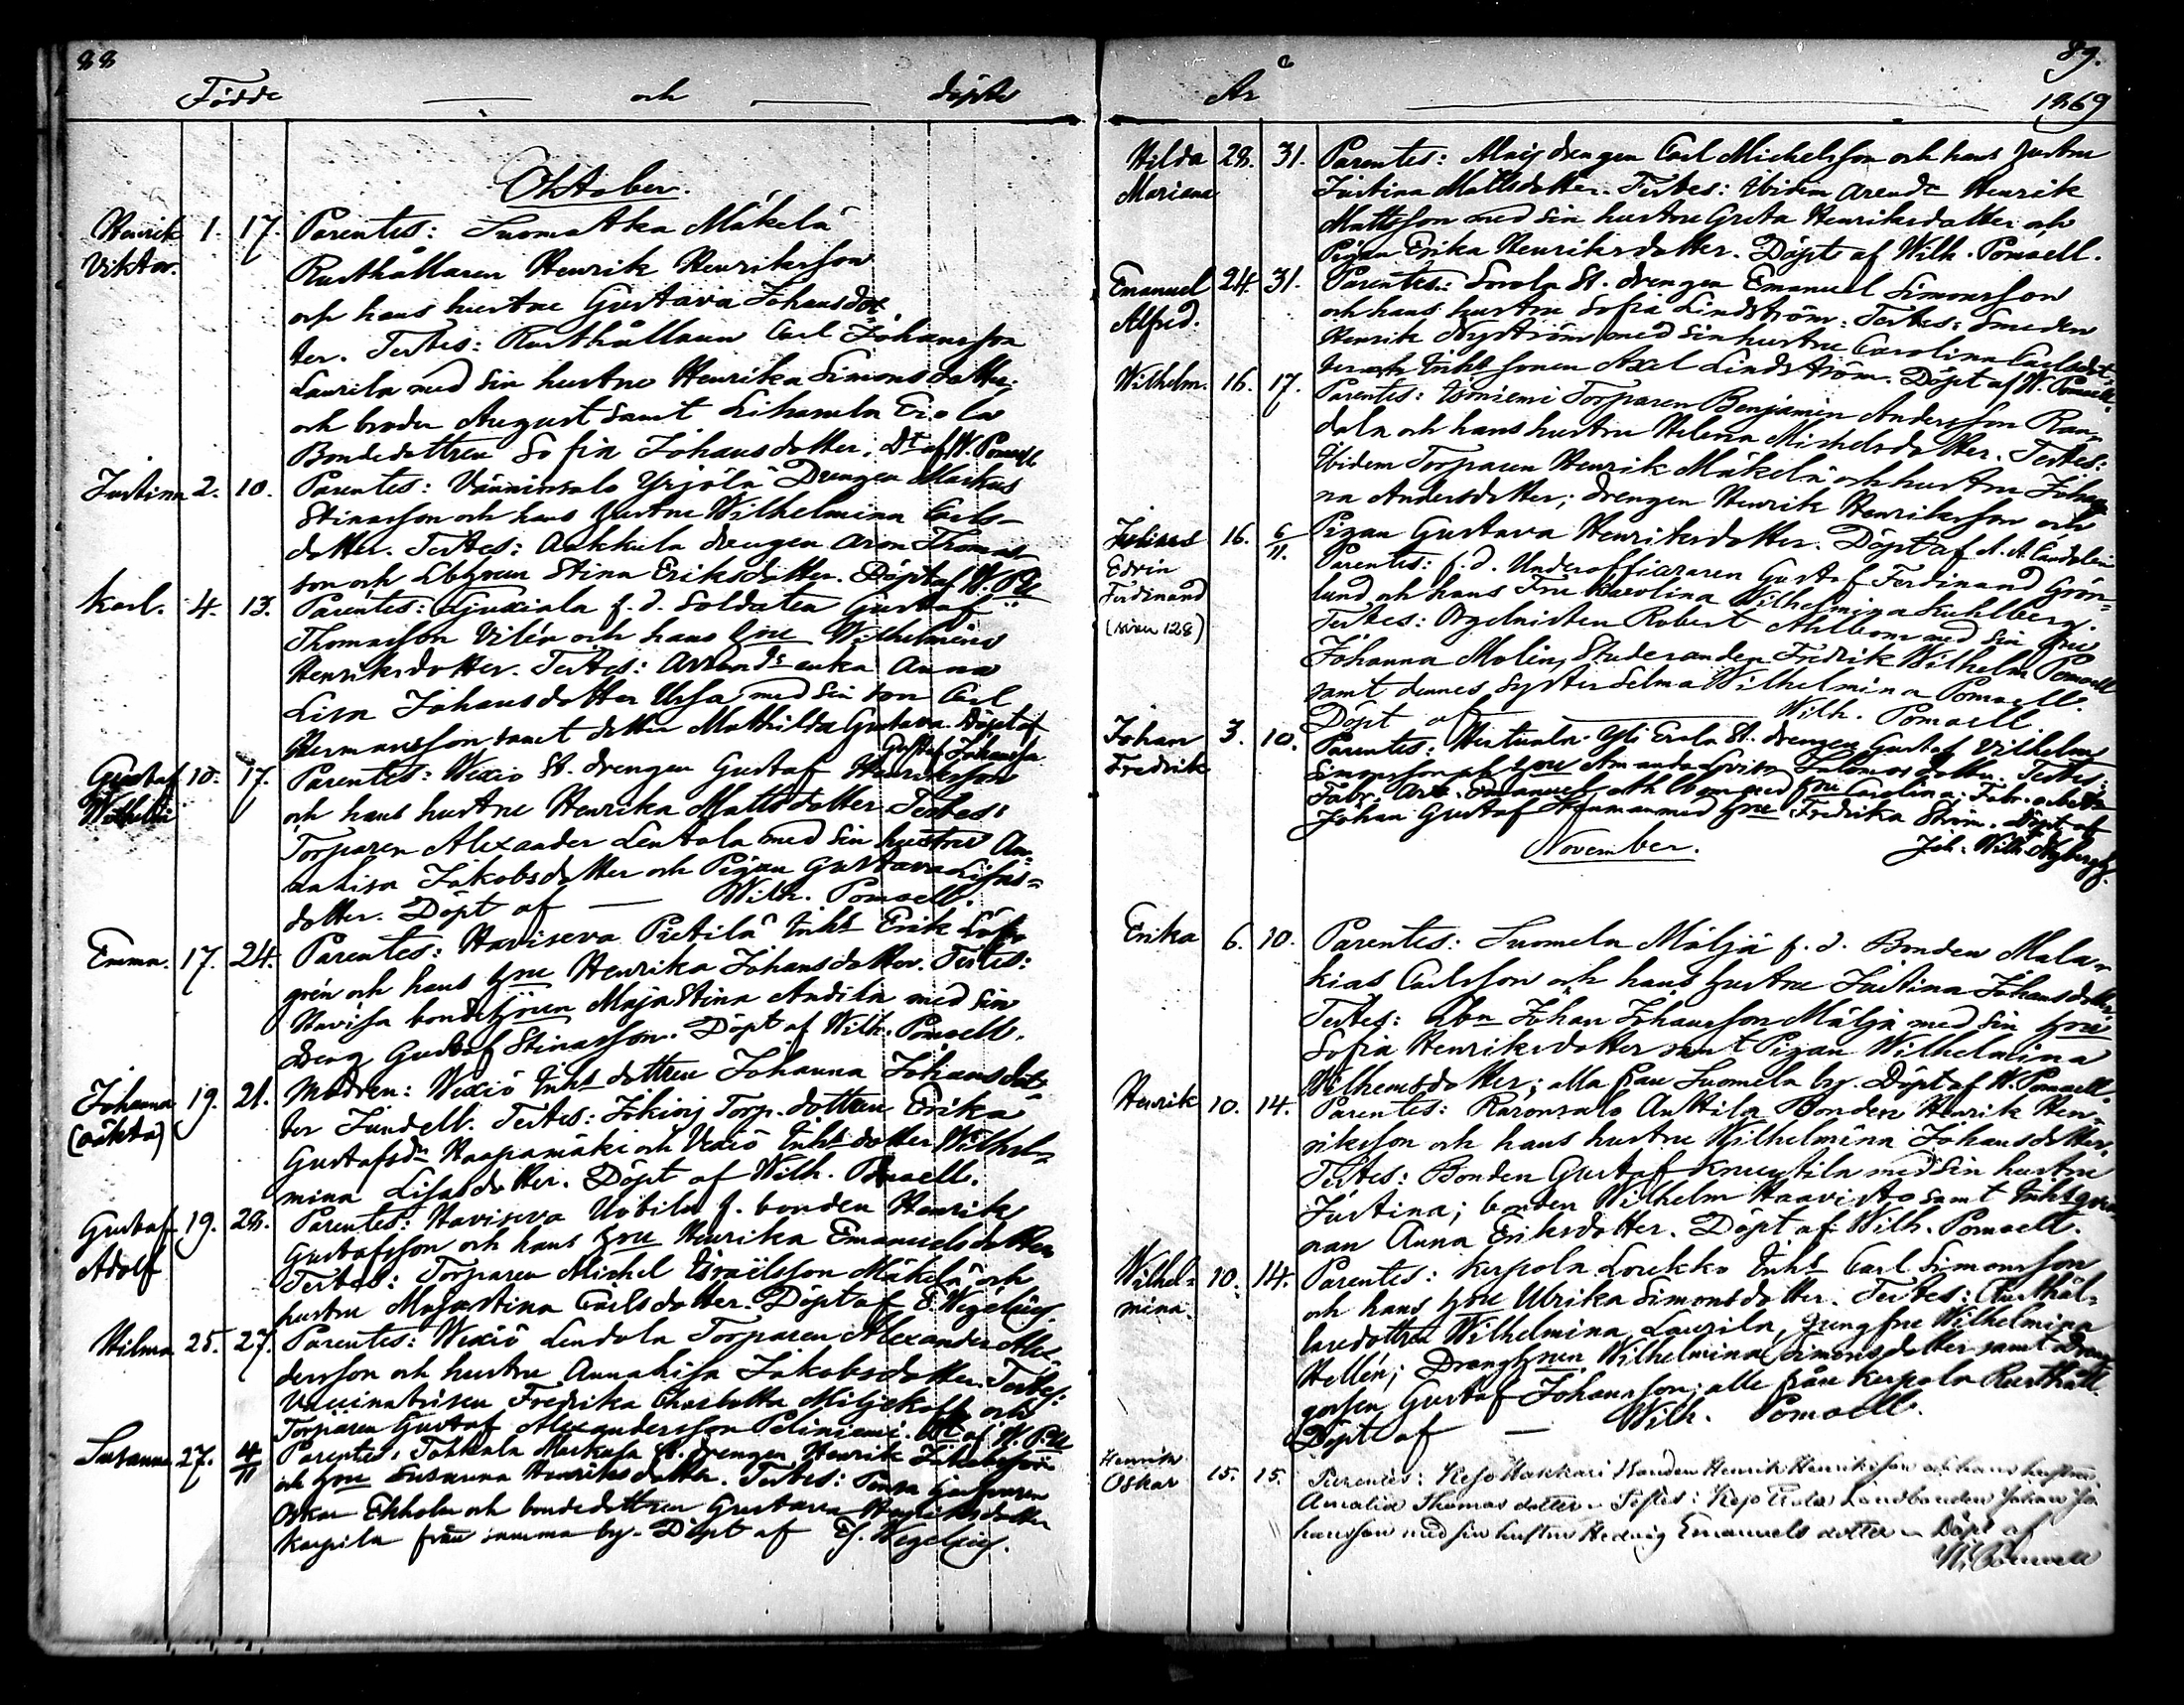 88
Födde — och — döpte
Oktober.
Henrik Viktor. 1. 17. Parentes: Suomataka Mäkelä
Rusthållaren Henrik Henriksson
och hans hustru Gustava Johansdot=
ter. Testes: Rusthållaren Carl Johansson
Laurila med sin hustru Henrika Simonsdotter
och broder August samt Lihasula Eiola
Bondedottren Sofia Johansdotter. Dt af W. Pomoell
Justina 2. 10. Parentes: Vänninsalo Yrjölä Drengen Markus
Stinasson och hans hustru Wilhelmina Carls-
dotter. Testes: Aakkula drengen Aron Thomas
son och Stina Eriksdotter. Döpt af W. Pll
Karl. 4. 13. Parentes: f. d. Soldaten Gustaf
Thomasson Vilén och hans hru Wilhelmina
Henriksdotter. Testes: enka Anna
Lisa Johansdotter Ursa med sin son Carl
Hermansson samt dotter Mathilda Gustava. Döpt af
Gustaf Johansson
Gustaf Wilhelm 10. 17. Parentes: Wexiö St. drengen Gustaf Henriksson
och hans hustru Henrika Mattsdotter Testes:
Torparen Alexander Lentola med sin hustru An=
nalisa Jakobsdotter och Pigan Gustava Lisas=
dotter. Döpt af — Wilh. Pomoell.
Emma. 17. 24. Parentes: Haviseva Pietilä Inht Erik Löf
grén och hans hru Henrika Johansdotter. Testes:
Havisa bondehrun Maja Stina Andila med sin
dreng Gustaf Stinasson. Döpt af Wilh. Pomoell.
Johanna (oäkta) 19. 21. Modren: Wexiö Inht dottren Johanna Johansdot=
ter Jundell. Testes: Jokiois Torp. dottren Erika
Gustafsdr Haapamäki och Vexiö Inht dotter Wilhel=
mina Lisasdotter. Döpt af Wilh. Pomoell.
Gustaf Adolf 19. 28. Parentes: Haviseva Uotila f. bonden Henrik
Gustafsson och hans hru Henrika Emanuelsdotter
Testes: Torparen Michel Israëlsson Mäkelä och
hustru Majastina Carlsdotter. Döpt af E. Wegelius.
Hilma 25. 27. Parentes: Wexiö Lendola Torparen Alexander Alex=
dersson och hustru Annalisa Jakobsdotter. Testes:
Vaccinatrisen Fredrika Charlotta Miljekoff och
Torparen Gustaf Alexandersson Peliniemi. Dt af W. Pll
Susanna 27. 4/11 Parentes: Tohkala Markusa St. drengen Henrik Jakobsson
och hru Susanna Henriksdotter. Testes:
Oskar Ekholm och bondedottren Gustava Henriksdotter
Karpila från samma by. Döpt af Ej. Wegelius.
89.
År — 1869
Hilda Mariana 28. 31. Parentes: drengen Carl Michelsson och hans hustru
Justina Mattsdotter. Testes: Ibidem Arende Henrik
Mattsson med sin hustru Greta Henriksdotter och
Pigan Erika Henriksdotter. Döpt af Wilh. Pomoell.
Emanuel Alfred. 24. 31. Parentes: Sorola St. drengen Emanuel Simonsson
och hans hustru Sofia Lindström. Testes: Smeden
Henrik Nyström med sin hustru Carolina Carlsdot=
ter och Inht sonen Axel Lindström. Döpt af W. Pomoell.
Wilhelm. 16. 17. Parentes: Isoniemi Torparen Benjamin Andersson Ran=
dala och hans hustru Helena Michelsdotter. Testes:
Ibidem Torparen Henrik Mäkelä och hustru Johan
na Andersdotter; drengen Henrik Henriksson och
Pigan Gustava Henriksdotter. Döpt af A. A. Candolin
Julius Edvin Ferdinand (sivu 128) 16. 6/11. Parentes: f. d. Underofficeraren Gustaf Ferdinand Grön=
lund och hans Fru Karolina Wilhelmina Kuhlberg.
Testes: Orgelnisten Robert Ahlbom med sin fru
Johanna Molin, Studeranden Fredrik Wilhelm Pomoell
samt dennes syster Selma Wilhelmina Pomoell.
Döpt af — Wilh. Pomoell
Johan Fredrik 3. 10. Parentes: Hertuala Yli Erola St. drengen Gustaf Vilhelm
Simonsson och hru Amanda Lovisa Salomonsdotter. Testes:
Fabr. Arb. Emanuel Ahlbom med hru Carolina; Fabr. arbetn
Johan Gustaf med hru Fredrika Ström. Döpt af
Joh. Wilh. Nybergh.
November.
Erika 6. 10. Parentes: Suomela Mäljä f. d. Bonden Mala=
kias Carlsson och hans hustru Justina Johansdotter.
Testes: Abn Johan Johansson Mäljä med sin hru
Sofia Henriksdotter samt Pigan Wilhelmina
Wilhemsdotter; alla fran Suomela by. Döpt af W. Pomoell.
Henrik 10. 14. Parentes: Raronsalo Anttila Bonden Henrik Hen=
riksson och hans hustru Wilhelmina Johansdotter.
Testes: Bonden Gustaf Knuutila med sin hustru
Justina; bonden Wilhelm Haavisto samt Inhtqvin
nan Anna Eriksdotter. Döpt af Wilh. Pomoell.
Wilhel= mina 10. 14. Parentes: Kerpola Loukko Inht Carl Simonsson
och hans hru Ulrika Simonsdotter. Testes: Rusthål=
laredottren Wilhelmina Laurila, Jungfru Wilhelmina
Hellén; Dränghrun Wilhelmina Simonsdotter samt Dren
gossen Gustaf Johansson; alle från Kerpola Rusthåll
Döpt af — Wilh. Pomoell.
Henrik Oskar 15. 15. Parentes: Kejo Hakkari Bonden Henrik Henriksson och hans hustru
Amalia Thomasdotter. Testes: Kejo Erola Landbonden Johan Jo
hansson med sin hustru Hedvig Emanuelsdotter. Döpt af
W. Pomoell